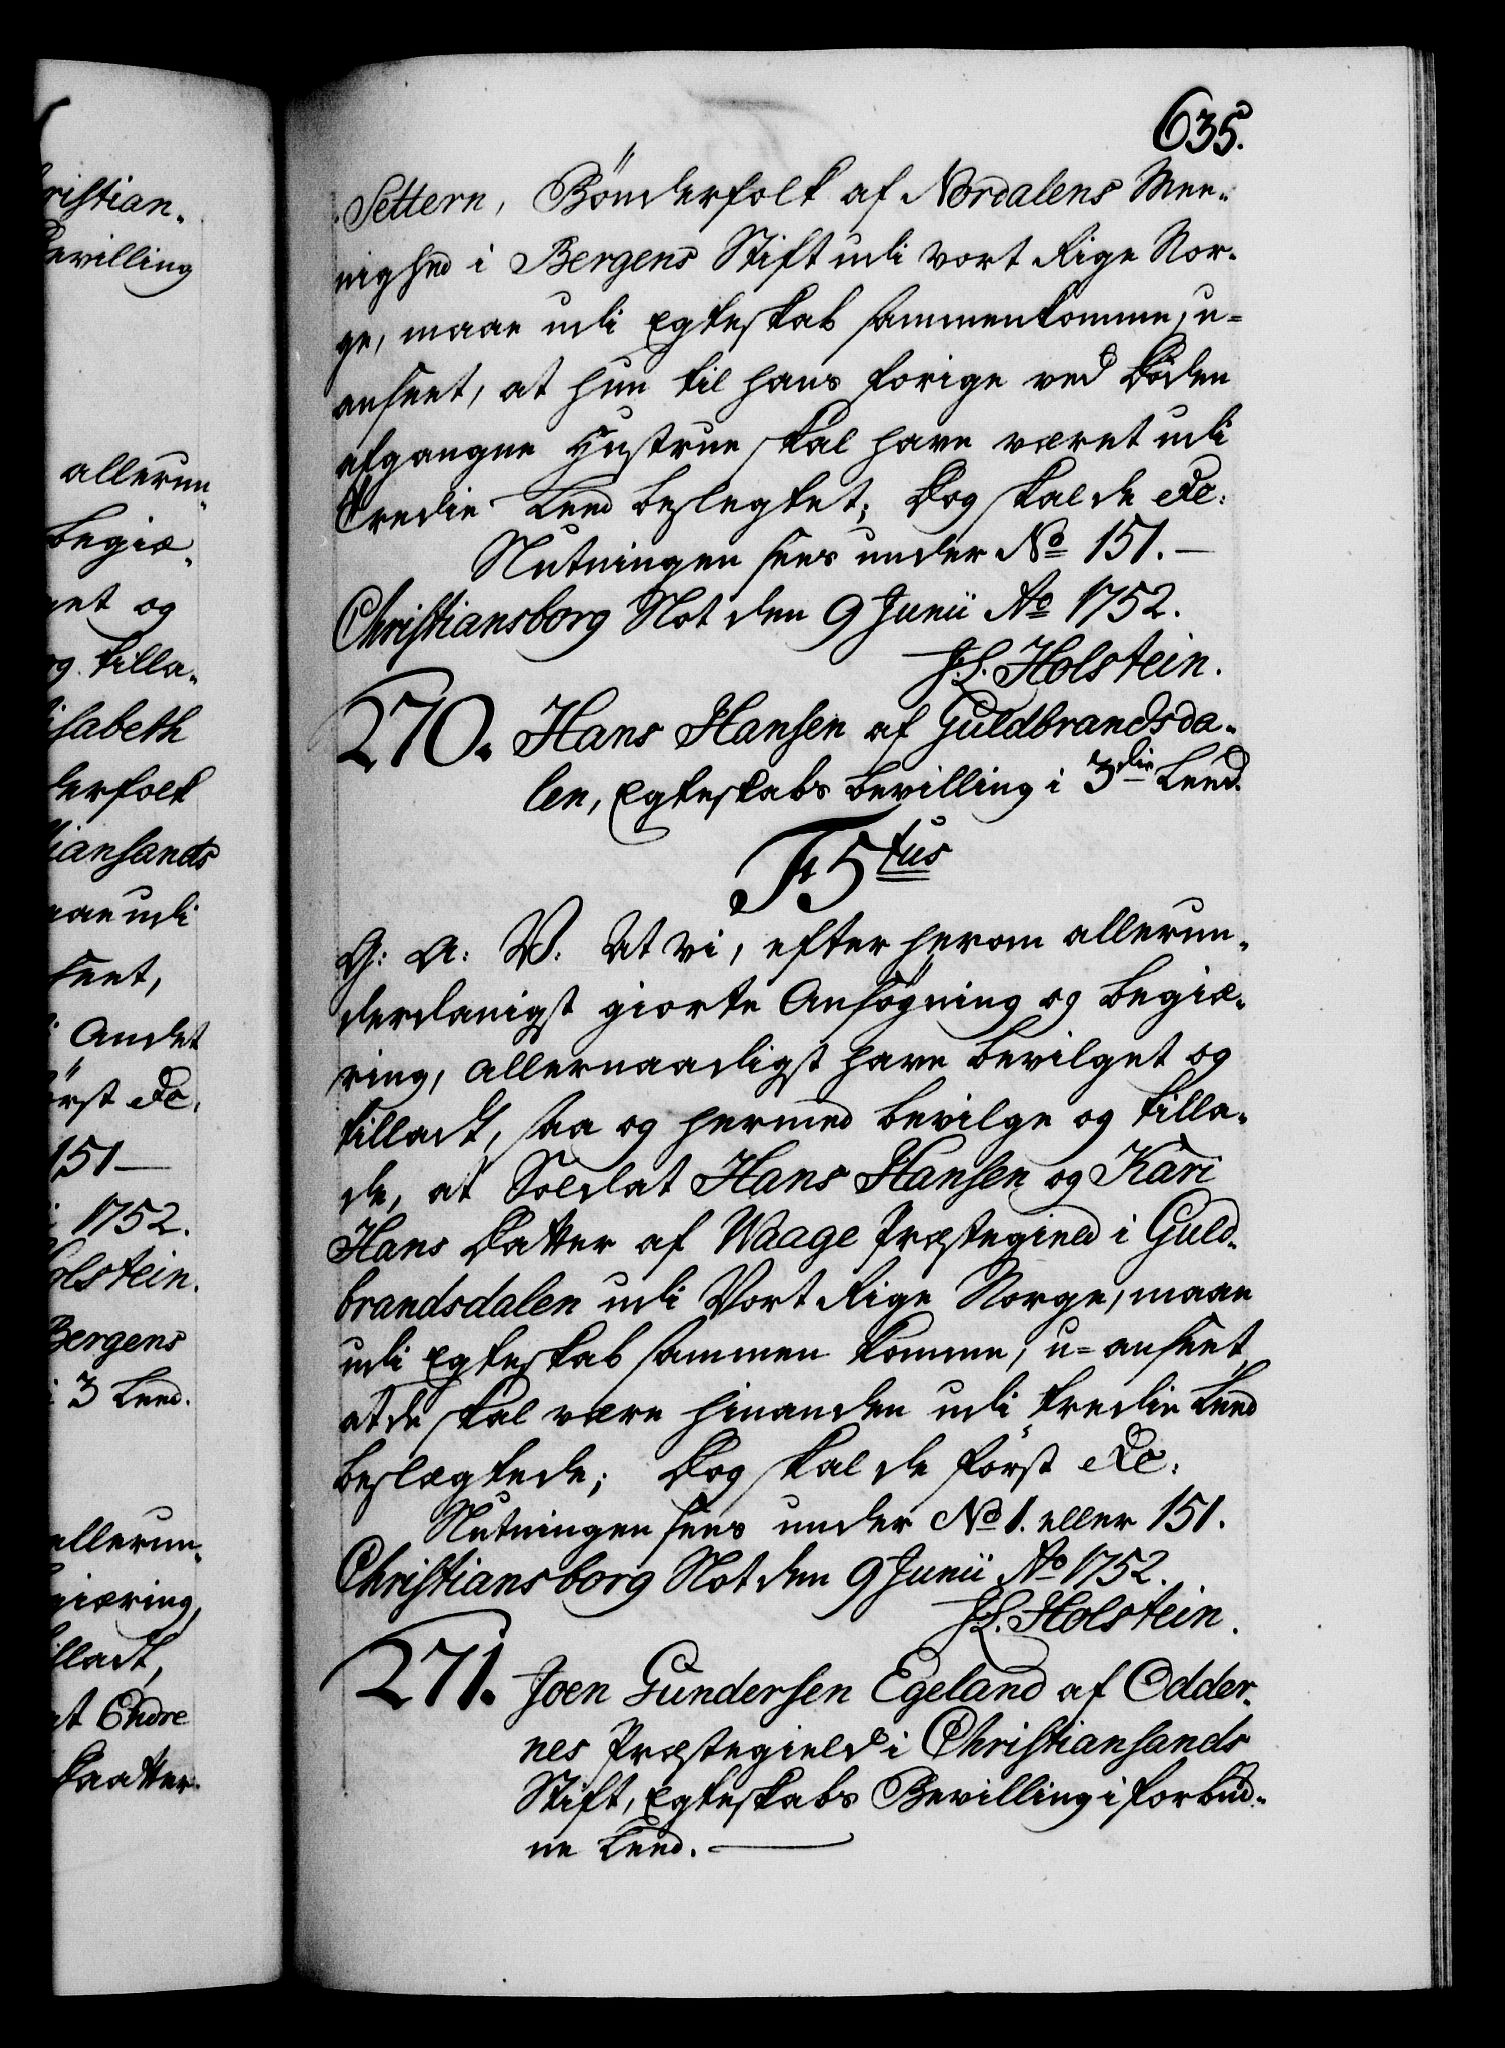 635.
Settern, Bönderfolk af Nordalens Mee-
nighed i Bergens Stift udi vort Rige Nor-
ge, maae udi Egteskab sammenkomme, u-
anseet, at hun til hans forige ved Döden
afgangne Hustrue skal have været udi
tredie Leed beslegtet; Dog skal de &c:
Slutningen sees under No 151.
Christiansborg Slot den 9 Junii Ao 1752.
J. L. Holstein.
270. Hans Hansen af Guldbrandsda-
len, Egteskabs bevilling i 3die Leed.
F 5tus
G: A: V. At vi, efter herom allerun-
derdanigst giorte Ansögning og begiæ-
ring, allernaadigst have bevilget og
tilladt, saa og hermed bevilge og tilla-
de, at Soldat Hans Hansen og Kari
Hans Datter af Waage Præstegield i Guld-
brandsdalen udi Vort Rige Norge, maae
udi Egteskab sammen komme, u-anseet
at de skal være hinanden udi tredie Leed
beslægtede; Dog skal de först &c:
Slutningen sees under No 1. eller 151.
Christiansborg Slot den 9 Junii Ao 1752.
J. L. Holstein.
271. Joen Gundersen Egeland af Odder-
nes Præstegield i Christiansands
Stift, Egteskabs Bevilling i forbud-
ne Leed.
ristian-
evilling
allerun-
begiæ-
et og
og tilla-
isabeth
derfolk
iansands
aae udi
seet,
Andet
örst &c,
151
1752.
olstein.
Bergens
i 3 Leed.
allerun-
giæring,
illadt,
at Endre
Daatter